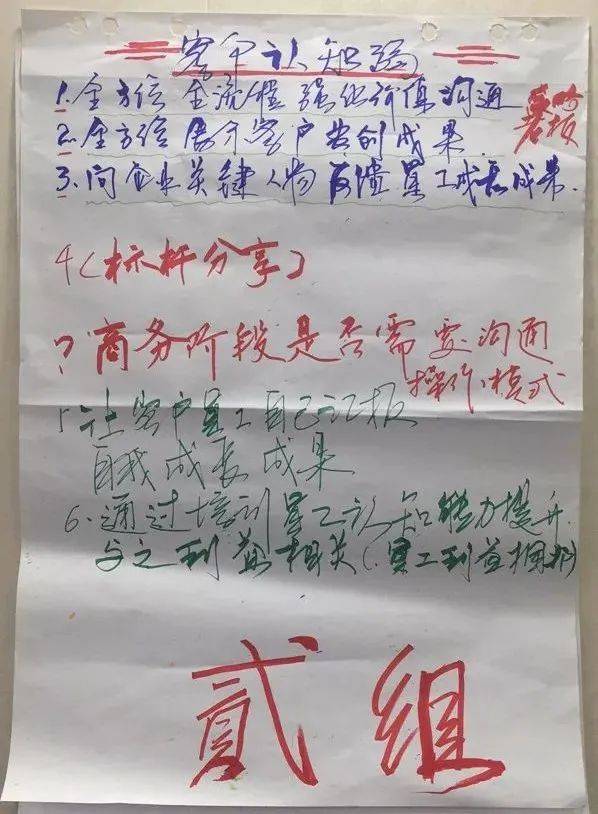 客户认知强
1. 全方位 全流程 强化价值沟通
2. 全方位 展示客户共创成果
3. 向企业关键人物反馈员工成长成果.
4（标杆分享）
? 商务阶段是否需要沟通
操作模式
5 让客户员工自己汇报
自我成长成果
6. 通过培训员工认知能力提升
与之利益相关（员工利益捆绑）
贰组